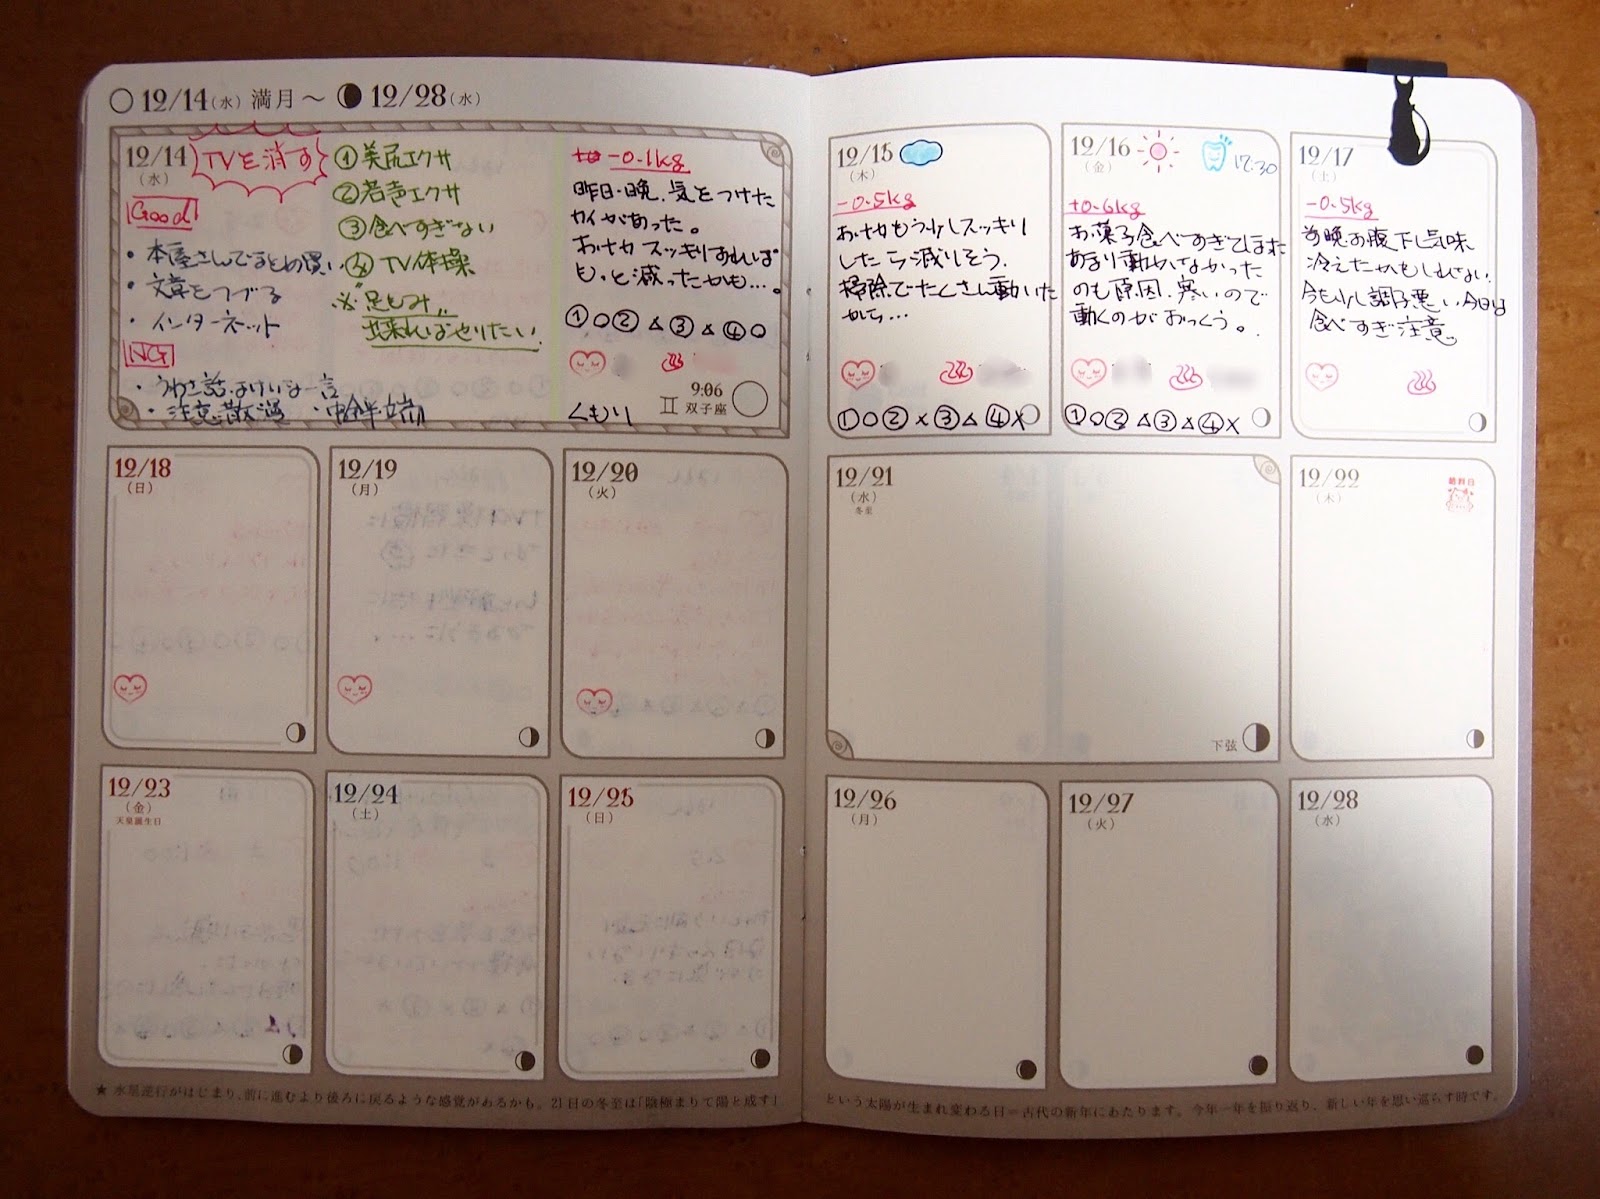 12/14(水) 満月〜 12/28(水)
12/14
(水)
TVを消す
Good
・本屋さんでまとめ買い
・文章をつづる
・インターネット
NG
・うわさ話、よけいな一言
・注意散漫 ・中途半端
①美尻エクサ
②若声エクサ
③食べすぎない
④TV体操
※足もみ..
出来ればやりたい.
-0.1kg
昨日・晩、気をつけた
カイがあった。
おナカ スッキリすれば
もっと減ったかも…。
①○②△③△④○
くもり
9:06
双子座
12/15
(木)
-0.5kg
おナカもう少しスッキリ
したら減りそう.
掃除でたくさん動いた
から…
①○②×③△④×
12/16
(金)
17:30
+0.6kg
お菓子食べすぎてしまた
あまり動かなかった
のも原因.寒いので
動くのがおっくう。
①○②△③△④×
12/17
(土)
-0.5kg
昨晩お腹下し気味
冷えたかもしれない.
今も少し調子悪い.今日は
食べすぎ注意。
12/18
(日)
12/19
(月)
12/20
(火)
12/21
(水)
冬至
下弦
12/22
(木)
12/23
(金)
天皇誕生日
12/24
(土)
12/25
(日)
12/26
(月)
12/27
(火)
12/28
(水)
★ 水星逆行がはじまり、前に進むより後ろに戻るような感覚があるかも。21日の冬至は「陰極まりて陽と成す」
という太陽が生まれ変わる日＝古代の新年にあたります。今年一年を振り返り、新しい年を思い巡らす時です。